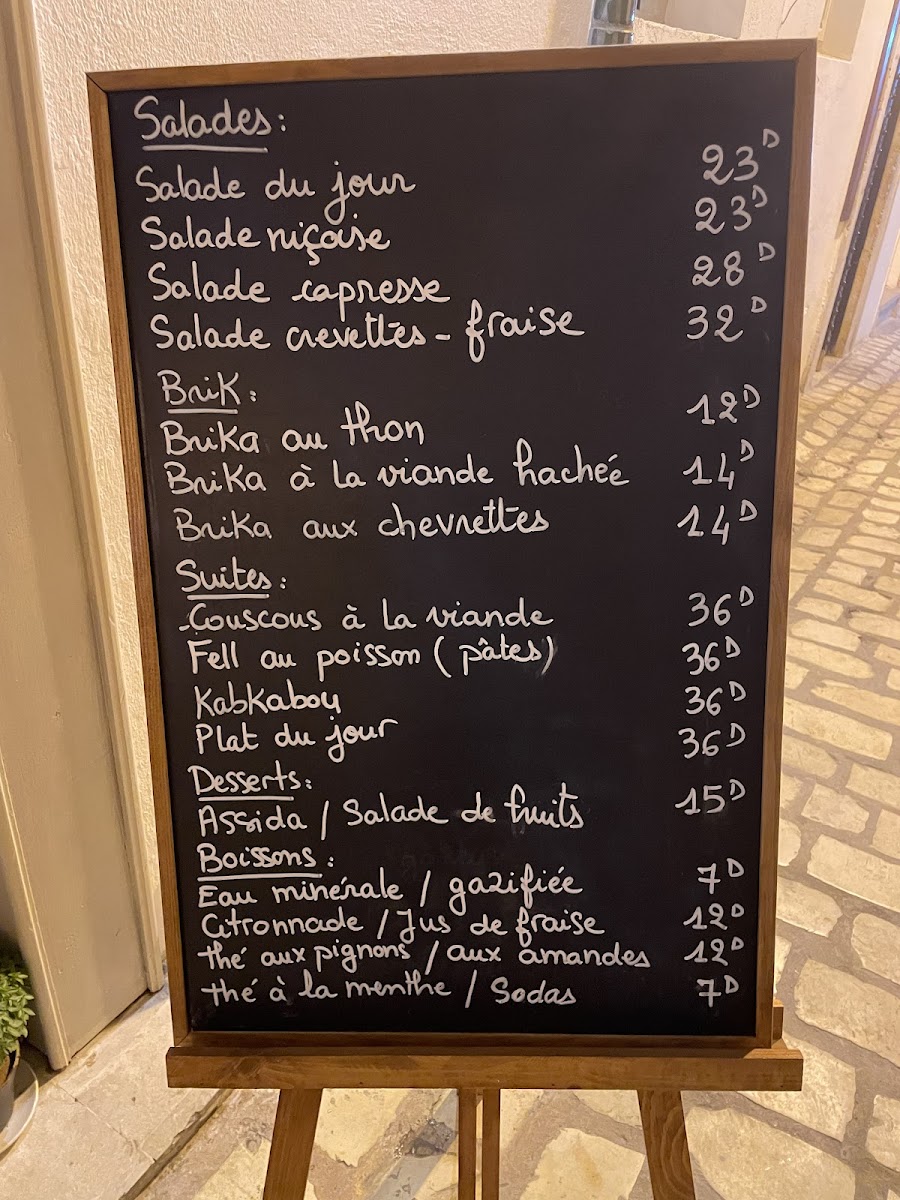 Salades:
Salade du jour 23D
Salade niçoise 23D
Salade capresse 28D
Salade crevettes - fraise 32D
Brik:
Brika au thon 12D
Brika à la viande hachée 14D
Brika aux chevrettes 14D
Suites:
Couscous à la viande 36D
Fell au poisson (pâtes) 36D
Kabkabou 36D
Plat du jour 36D
Desserts:
Assida / Salade de fruits 15D
Boissons:
Eau minérale / gazifiée 7D
Citronnade / Jus de fraise 12D
thé aux pignons / aux amandes 12D
thé à la menthe / Sodas 7D